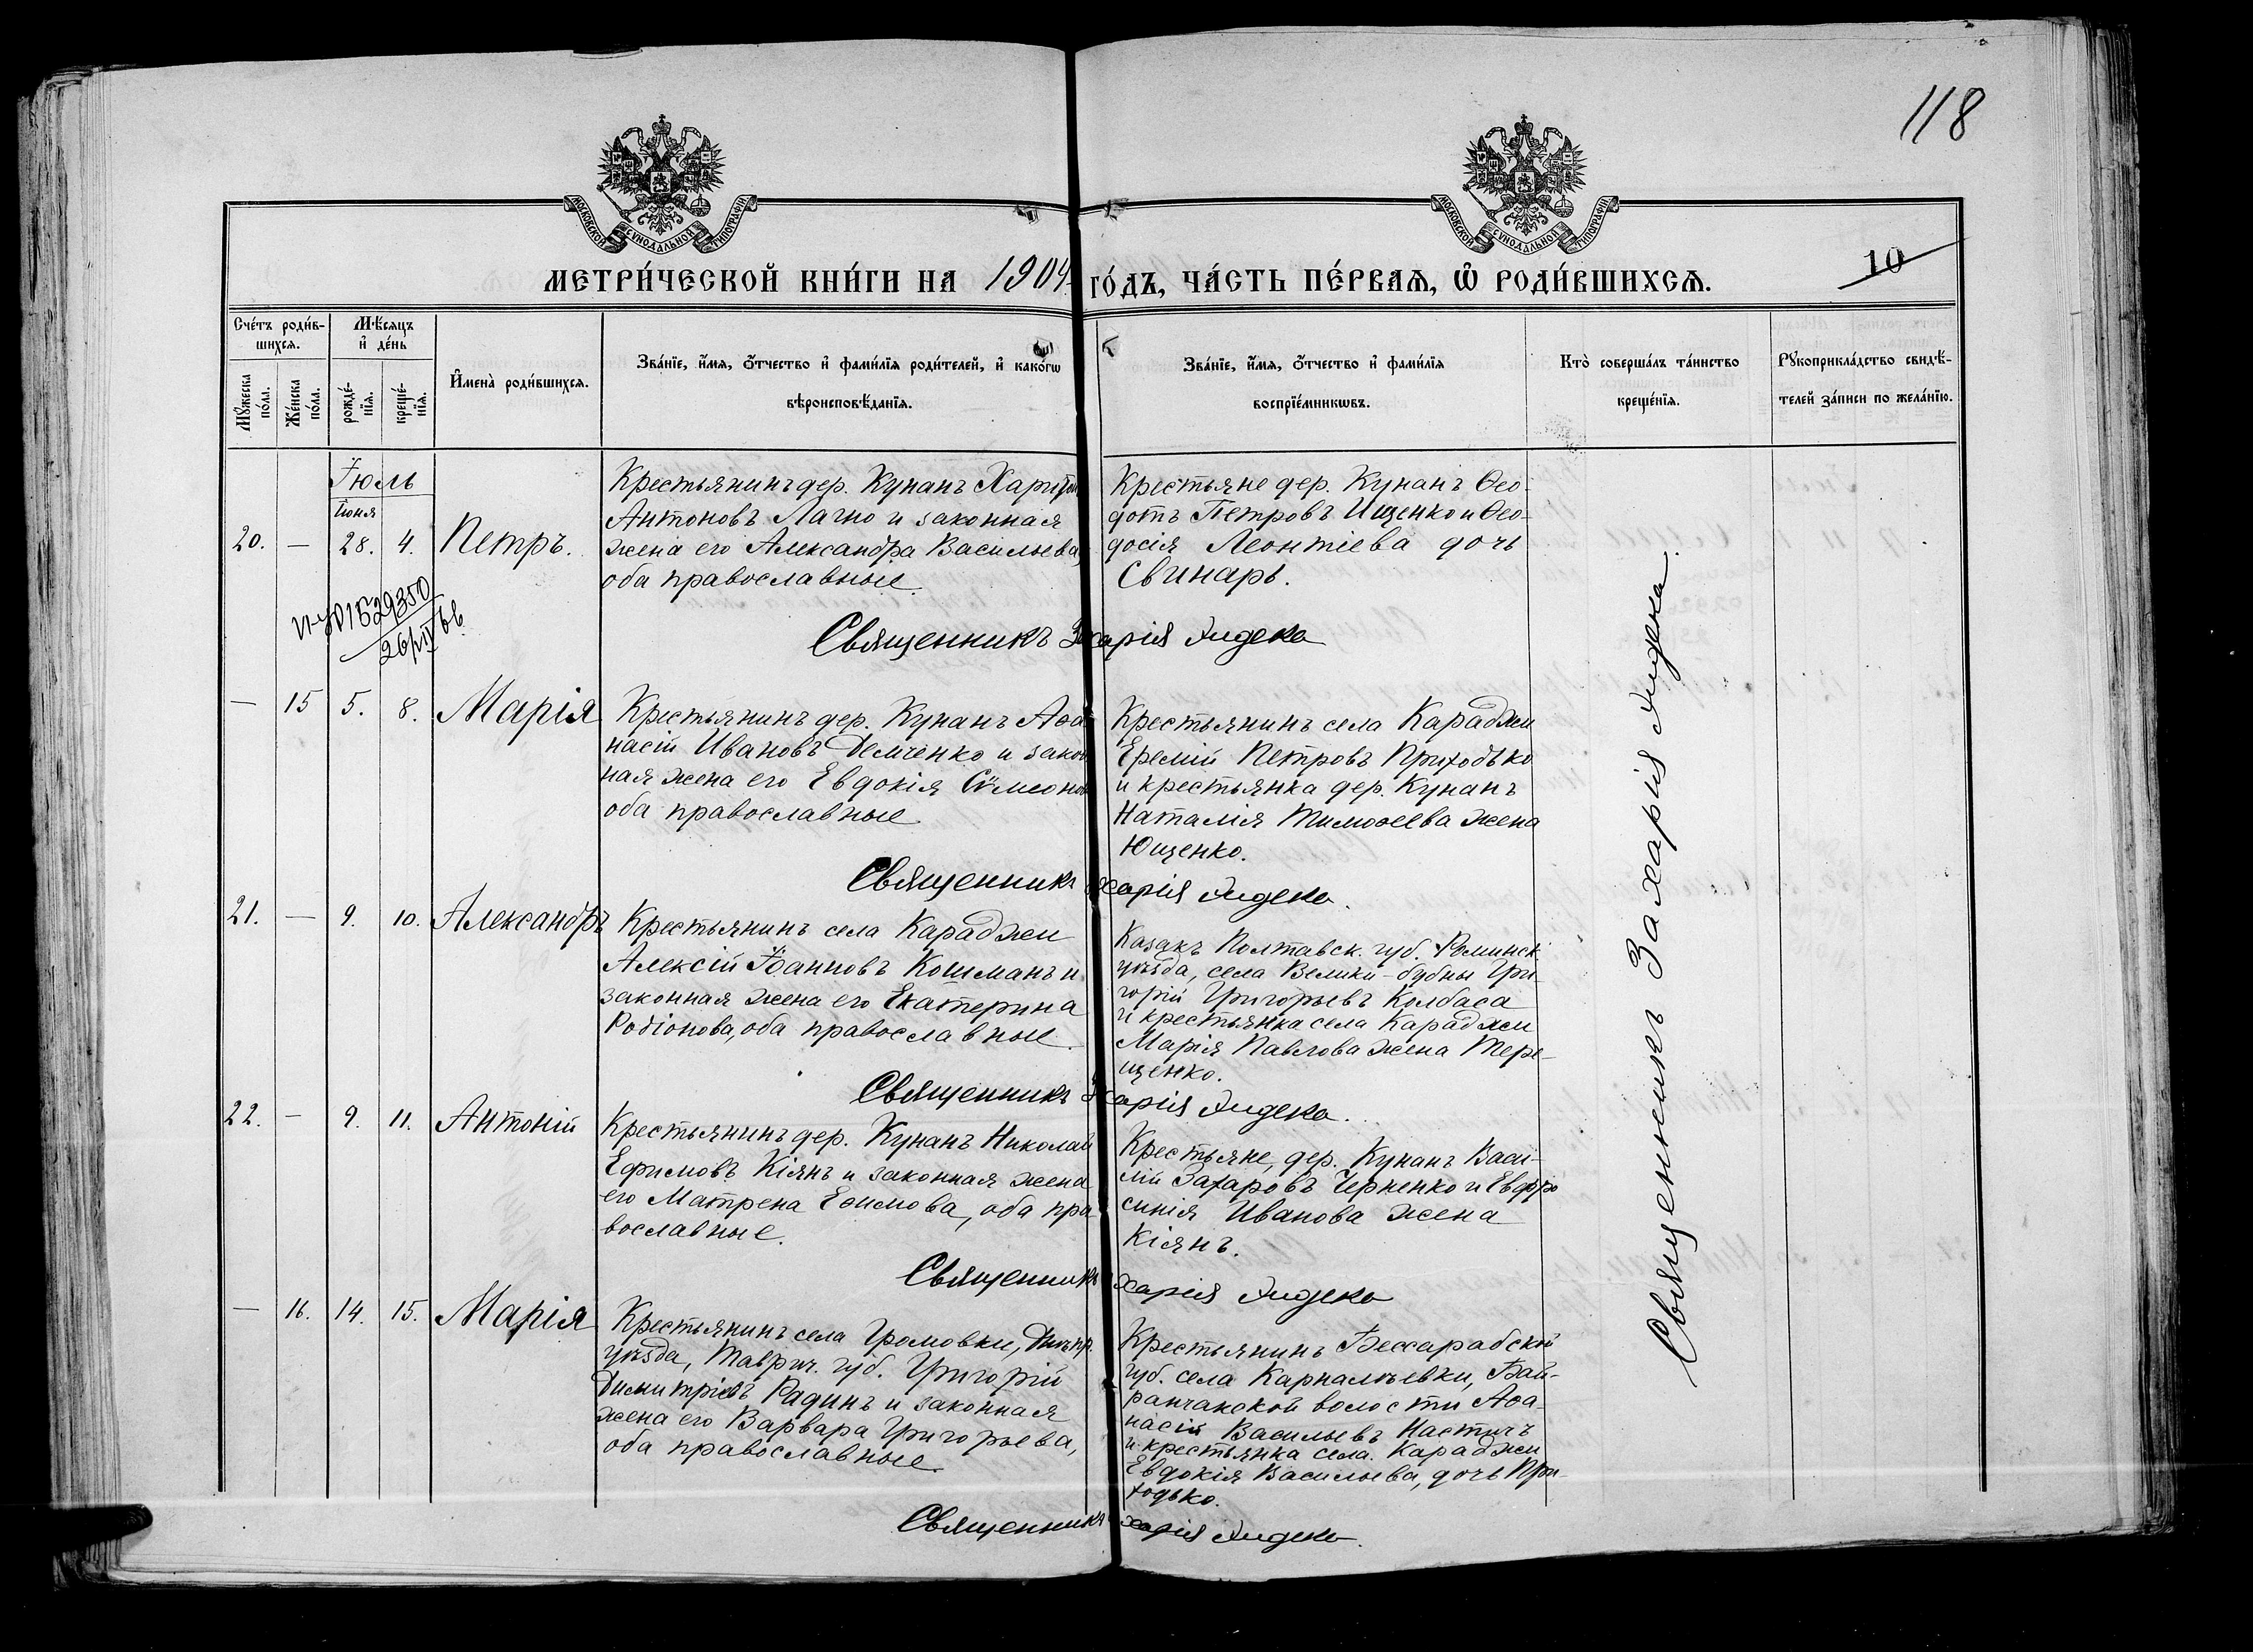 118
МОСКОВСКОЙ СѴНОДАЛЬНОЙ ТИПОГРАФІИ
МОСКОВСКОЙ СѴНОДАЛЬНОЙ ТИПОГРАФІИ
10
МЕТРИ́ЧЕСКОЙ КНИ́ГИ НА 1904 ГО́ДЪ, ЧА́СТЬ ПЕ́РВАѦ, Ѡ҆ РОДИ́ВШИХСѦ.
Сче́тъ роди́в-
шихсѧ.
Мꙋ́жеска по́ла.
Же́нска по́ла.
Мѣ́сяцъ
и҆ де́нь
рожде́-
нїѧ.
креще́-
нїѧ.
И҆мена̀ роди́вшихсѧ.
Зва́нїе, и҆́мѧ, ѻ҆́тчество и҆ фами́лїѧ роди́телей, и҆ како́гѡ
вѣроисповѣ́данїѧ.
Зва́нїе, и҆́мѧ, ѻ҆́тчество и҆ фами́лїѧ
воспрїе́мникѡвъ.
Кто̀ соверша́лъ та́инство
креще́нїѧ.
Рꙋкоприкла́дство свидѣ́-
телей за́писи по жела́нїю.
Іюль
Іюня
20. — 28. 4. Петръ.
Крестьянинъ дер. Кунанъ Харитонъ
Антоновъ Лагно и законная
жена его Александра Васильева,
оба православные.
Крестьяне дер. Кунанъ Ѳео-
дотъ Петровъ Ищенко и Ѳео-
досія Леонтіева дочь
Свинарь.
Священникъ Захарія
— 15 5. 8. Марія
Крестьянинъ дер. Кунанъ Аѳа
насій Ивановъ Демченко и закон
ная жена его Евдокія Сѵмеонов
оба православные
Крестьянинъ села Караджи
Еремій Петровъ Приходько
и крестьянка дер. Кунанъ
Наталія Тимоѳеева жена
Ющенко.
Священникъ Захарія
21. — 9. 10. Александръ
Крестьянинъ села Караджи
Алексій Іоанновъ Кошманъ и
законная жена его Екатерина
Родіонова, оба православные.
Казакъ Полтавск. губ. Роминск.
уѣзда, села Велики-бубны Гри-
горій Григорьевъ Колбаса
и крестьянка села Караджи
Марія Павлова жена Тере-
щенко.
Священникъ Захарія
22. — 9. 11. Антоній
Крестьянинъ дер. Кунанъ Николай
Ефимовъ Кіянъ и законная жена
его Матрена Ефимова, оба пра
вославные.
Крестьяне, дер. Кунанъ Васи-
лій Захаровъ Черненко и Евфро
синія Иванова жена
Кіянъ.
Священникъ Захарія
— 16. 14. 15. Марія
Крестьянинъ села Громовки, Днѣпр.
уѣзда, Таврич. губ. Григорій
Димитріевъ Радинъ и законная
жена его Варвара Григорьева,
оба православные.
Крестьянинъ Бессарабской
губ. села Карналѣевки, Бай-
рамчакской волости Аѳа-
насій Васильевъ Настичъ
и крестьянка села Караджи
Евдокія Васильева, дочь При-
ходько.
Священникъ Захарія
Священникъ Захарія